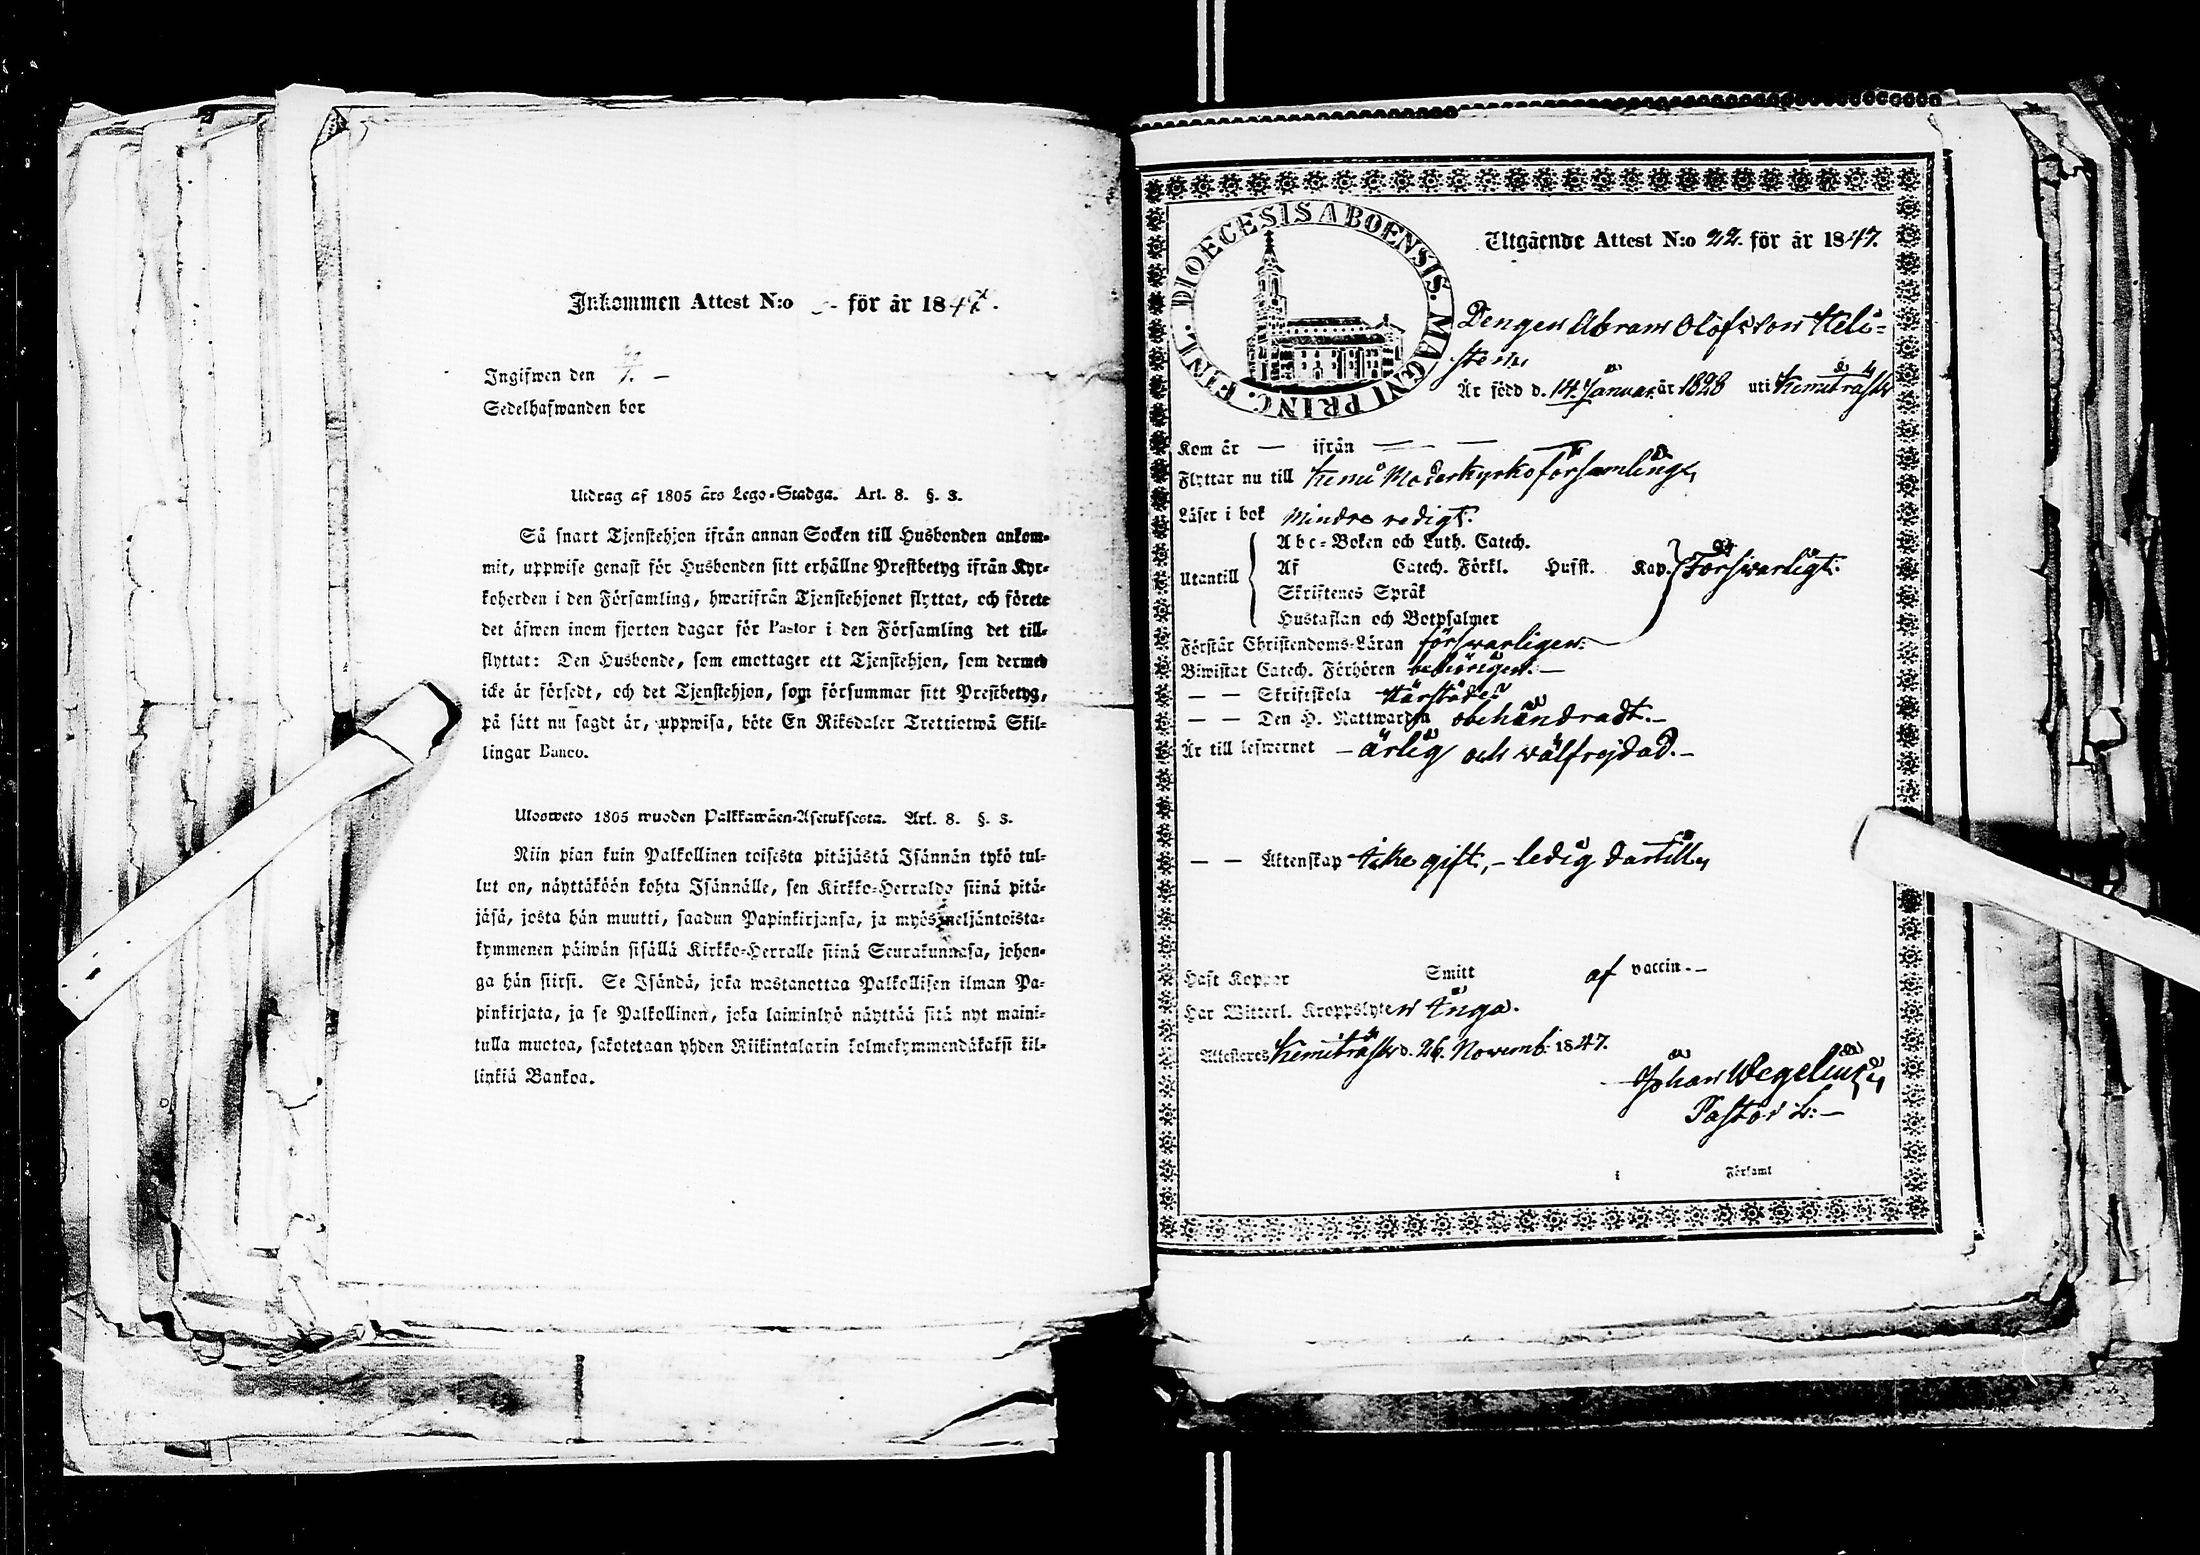 Inkommen Attest N:o för år 1847.
Ingifwen den
Sedelhafwanden bor
Utdrag af 1805 års Lego-Stadga. Art. 8. §. 3.
Så snart Tjenstehjon ifrån annan Socken till Husbonden ankom-
mit, uppwise genast för Husbonden sitt erhållne Prestbetyg ifrån Kyr-
koherden i den Församling, hwarifrån Tjenstehjonet flyttat, och förete
det äfwen inom fjorton dagar för Pastor i den Församling det till-
flyttat: Den Husbonde, som emottager ett Tjenstehjon, som dermed
icke är försedt, och det Tjenstehjon, som försummar sitt Prestbetyg,
på sätt nu sagdt är, uppwisa, böte En Riksdaler Trettiotwå Skil-
lingar Banco.
Ulosweto 1805 wuoden Palkkawäen-Asetuksesta. Art. 8. §. 3.
Niin pian kuin Palkollinen toisesta pitäjästä Isännän tykö tul-
lut on, näyttäköön kohta Isännälle, sen Kirkko-Herralda siinä pitä-
jäsä, josta hän muutti, saadun Papinkirjansa, ja myös neljäntoista-
kymmenen päiwän sisällä Kirkko-Herralle siinä Seurakunnasa, johon-
ga hän siirsi. Se Isändä, joka wastanottaa Palkollisen ilman Pa-
pinkirjata, ja se Palkollinen, joka laiminlyö näyttää sitä nyt maini-
tulla muotoa, sakotetaan yhden Riikintalarin kolmekymmendäkaksi kil-
linkiä Bankoa.
DIOECESIS ABOENSIS. MAGNI PRINC. FINL.
Utgående Attest N:o 22. för år 1847.
Drengen Abram Olofsson Heli-
stenu
Är född d. 14. Januar. år 1828 uti Kemiträsk
Kom år — ifrån — —
Flyttar nu till Kemi Moderkyrkoförsamling,
Läser i bok Mindre redigt.
Utantill
Abc-Boken och Luth. Catech.
Af Catech. Förkl. Husst. Kap. Försvarligt.
Skriftenes Språk
Hustaflan och Botpsalmer
Förstår Christendoms-Läran försvarligen.
Biwistat Catech. Förhören behörigen. —
— — Skriftskola härstädes
— — Den H. Nattwarden obehindradt. —
Är till lefwernet — ärlig och wälfrejdad. —
— — Äktenskap icke gift, — ledig dertill,
Haft Koppor Smitt af vaccin. —
Har Witterl. Kroppslyten Inga.
Attesteres Kemiträsk d. 26. Novemb. 1847.
Johan Wegelius,
Pastor L. —
i Församl